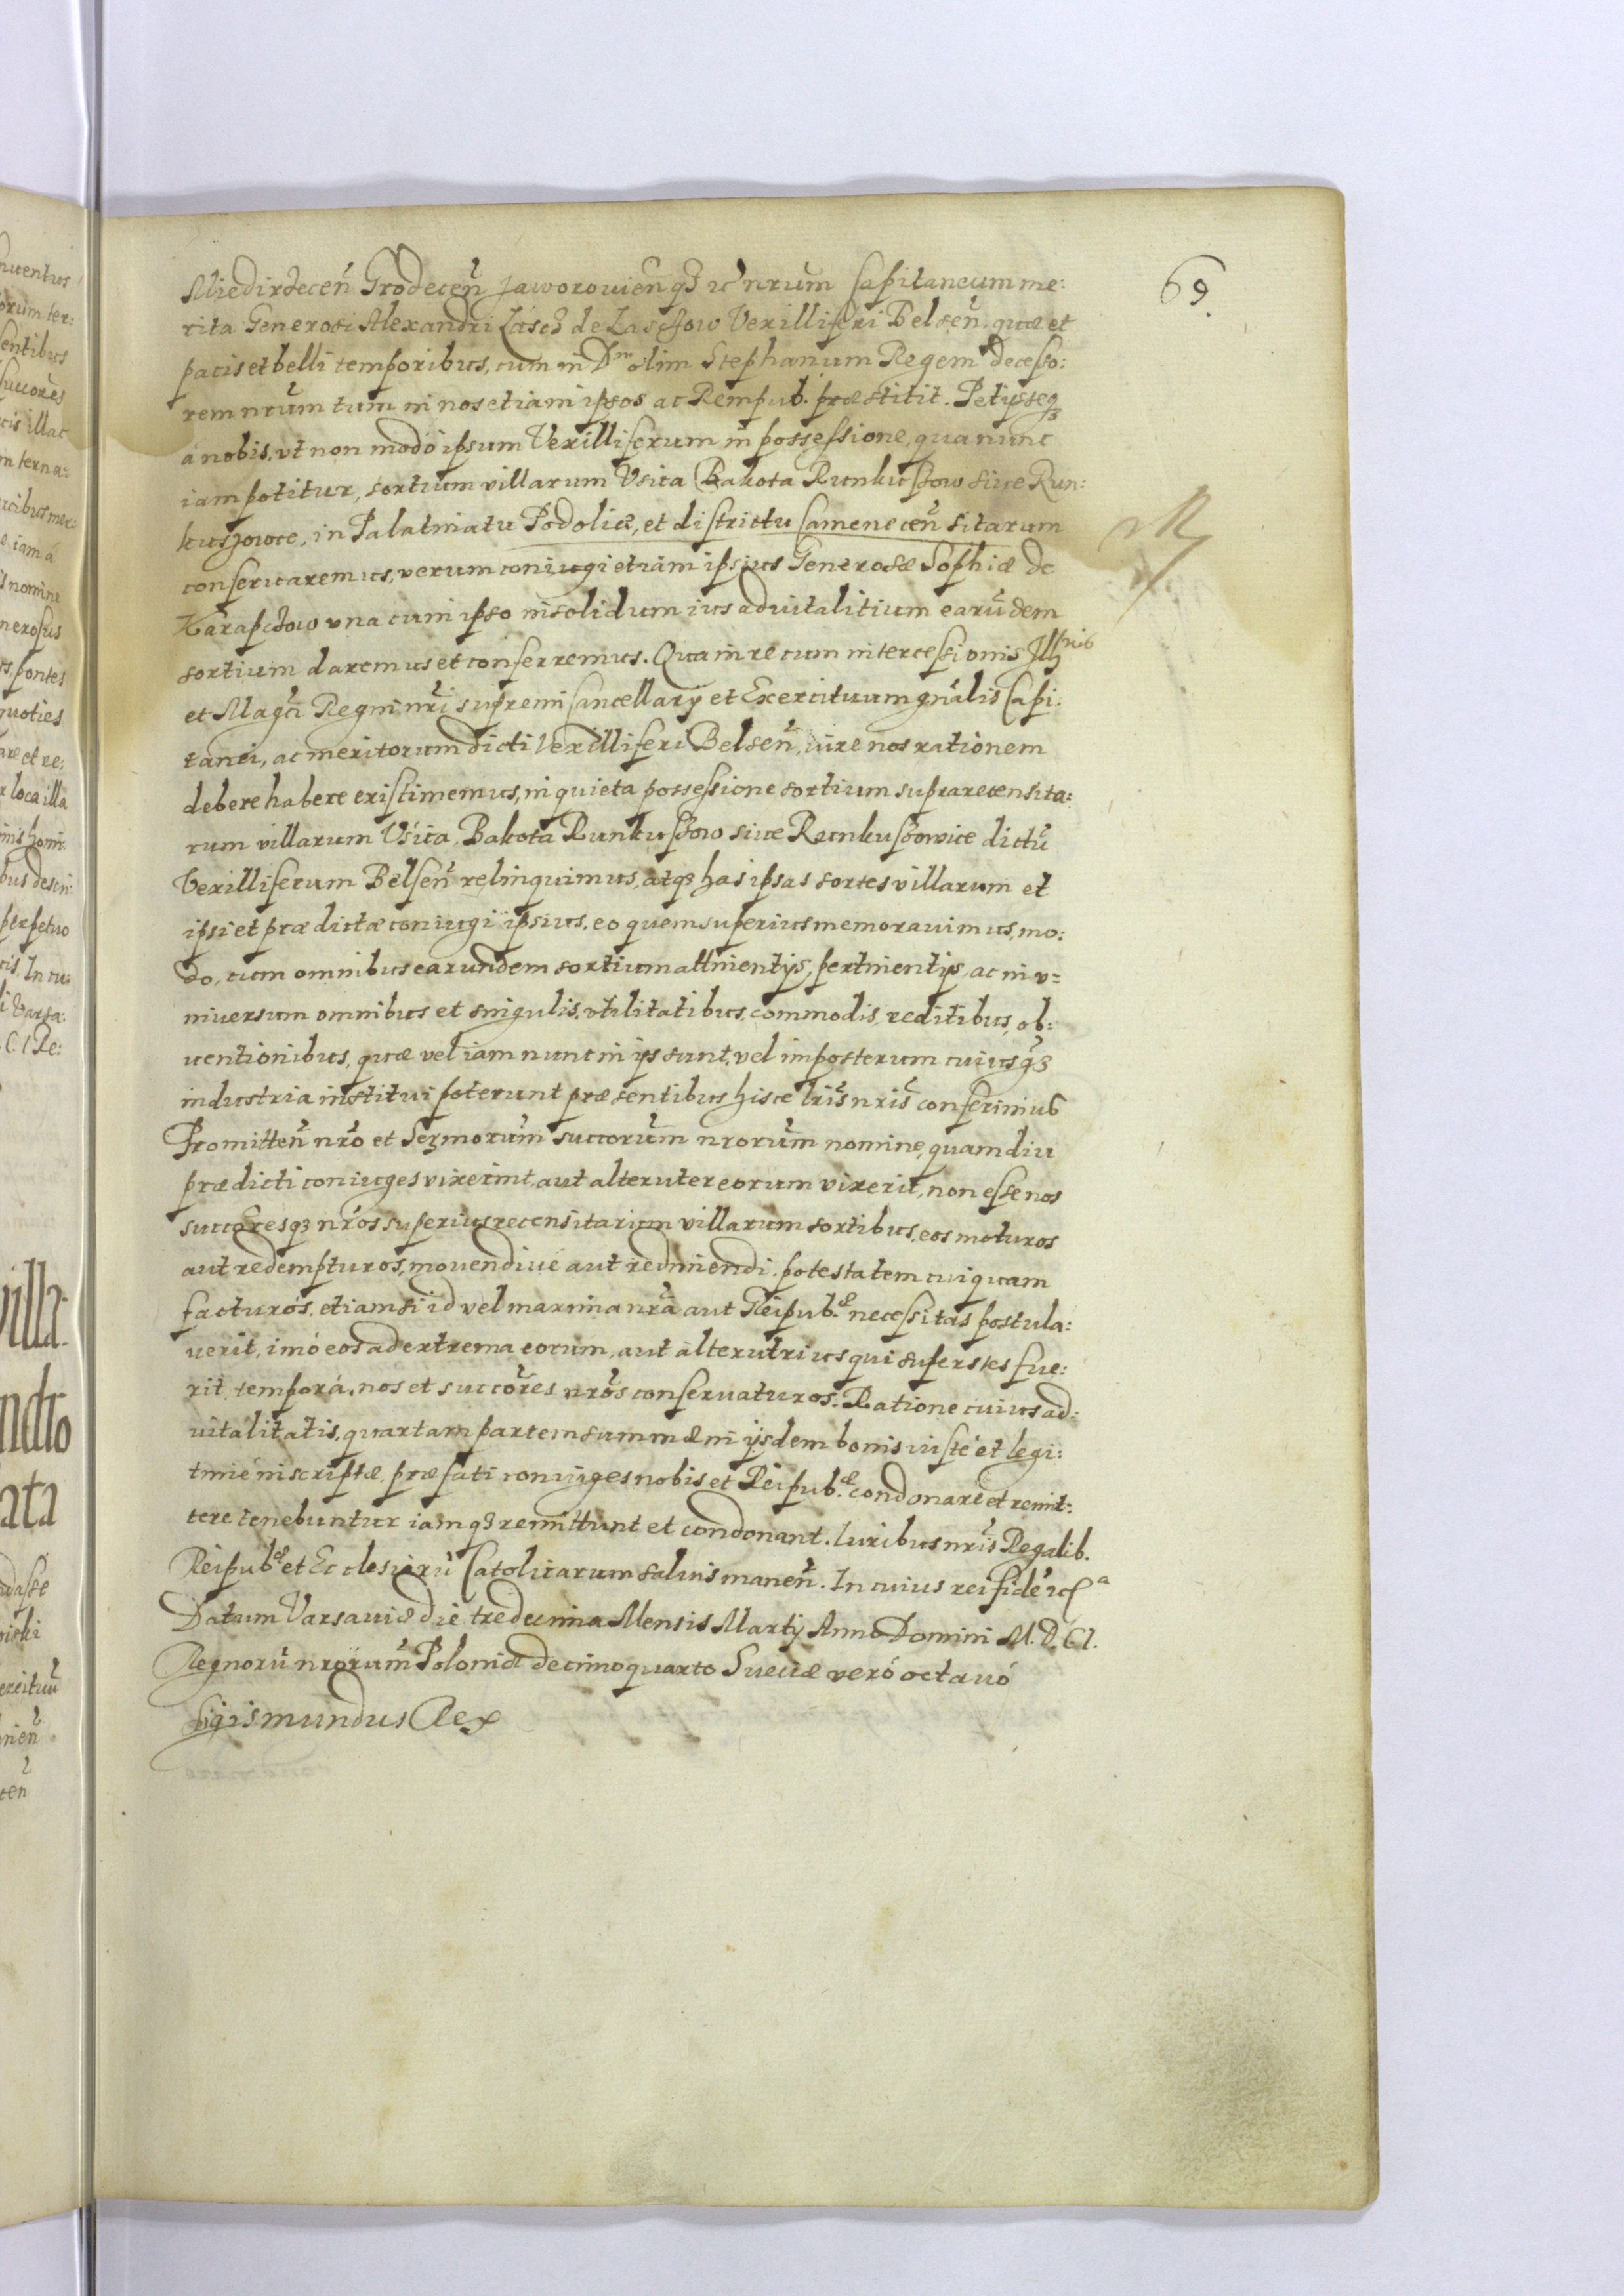 69.
Miedirzecen̄ Grodecen̄ Jaworouien̄ qз ac nrum Capitaneum me:
rita Generosi Alexandri Lascz de Lasczow Vexilliferi Belsen̄. quæ et
pacis et belli temporibus, cum in D. olim Stephanum Regem decesso:
rem nrum tum in nos etiam ipsos ac Rempub. præstitit. Petysseqз
á nobis, vt non modo ipsum Vexilliferum in possessione, qua nunc
iam potitur, sortium villarum Vsica Bakota Runkuszow siue Run:
kuszowce, in Palatinatu Podoliæ, et districtu Camenecen̄ sitarum
conseruaremus, verum coniugi etiam ipsius Generosæ Sophiæ de
Karapczow vna cum ipso in solidum ius aduitalitium earūdem
sortium daremus et conferremus. Qua in re cum intercessionis Illmi
et Magci Regni nri supremi Cancellarÿ et Exercituum gnālis Capi:
tanei, ac meritorum dicti Vexilliferi Belsen̄, iure nos rationem
debere habere existimemus, in quieta possessione sortium suprarecensita:
rum villarum Vsica, Bakota Runkuszow siue Runkuszowice dictū
Vexilliferum Belsen̄ relinquimus, atqз has ipsas sortes villarum et
ipsi et prædictæ coniugi ipsius, eo quem superius memorauimus, mo:
do, cum omnibus earundem sortium attinentÿs, pertinentÿs, ac in v=
niuersum omnibus et singulis, vtilitatibus, commodis, reditibus, ob:
uentionibus, quæ vel iam nunc in ÿs sunt, vel imposterum cuiusqз
industria institui poterunt præsentibus hisce lris nris conferimus
Promitten̄ nrō et Sezmorum succorum nrorum nomine, quamdiu
prædicti coniuges vixerint, aut alteruter eorum vixerit, non esse nos
succoresqз nrōs superius recensitarum villarum sortibus, eos moturos
aut redempturos, mouendiue aut redimendi potestatem cuiquam
facturos, etiamsi id vel maxima nrā aut Reipub.æ necessitas postula:
uerit, imó eos ad extrema eorum, aut alterutrius qui superstes fue:
rit tempora, nos et succores nrōs conseruaturos. Ratione cuius ad:
uitalitatis, quartam partem summæ in ijsdem bonis iusté et legi:
timé inscriptæ præfati coniuges nobis et Reipub.æ condonare et remit:
tere tenebuntur iamqз remittunt et condonant. Iuribus nris Regalib.
Reipub.æ et Ecclesiarū Catolicarum saluis manen̄. In cuius rei fidē etca
Datum Varsauiæ die tredecima Mensis Martÿ Anno Domini M. D. C I.
Regnorū nrorum Poloniæ decimoquarto Sueciæ veró octauó
Sigismundus Rex